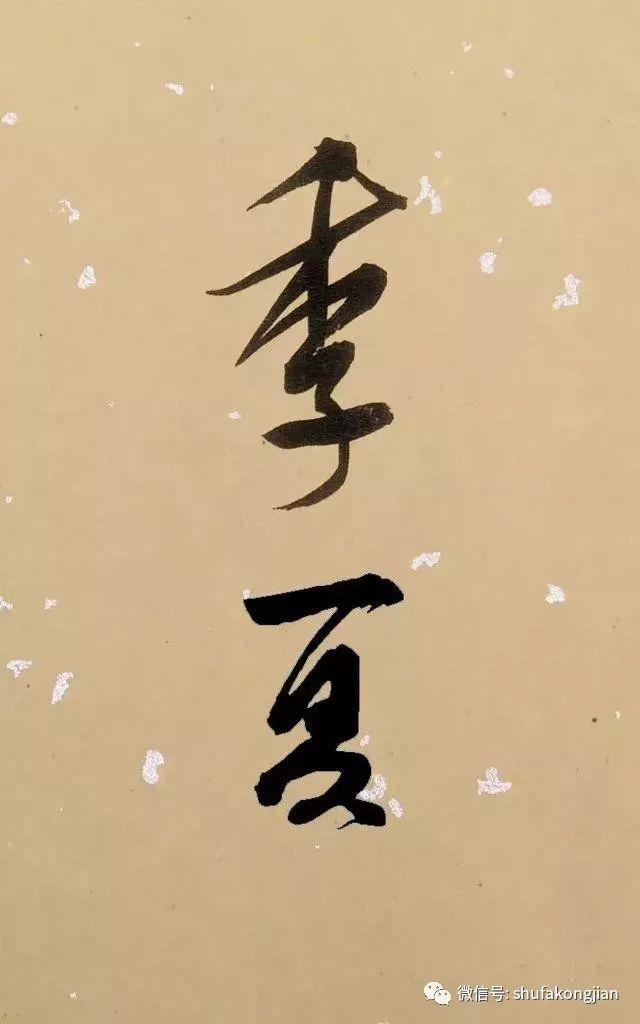 季夏
微信号: shufakongjian